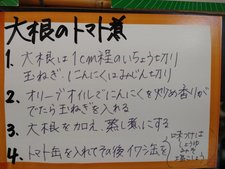 大根のトマト煮
1. 大根は1cm程のいちょう切り
玉ねぎ、にんにくはみじん切り
2. オリーブオイルでにんにくを炒め香りが
でたら玉ねぎを入れる
3. 大根を加え、蒸し煮にする
4. トマト缶を入れてその後イワシ缶を
味つけは
しょうゆ
みりん
塩こしょう